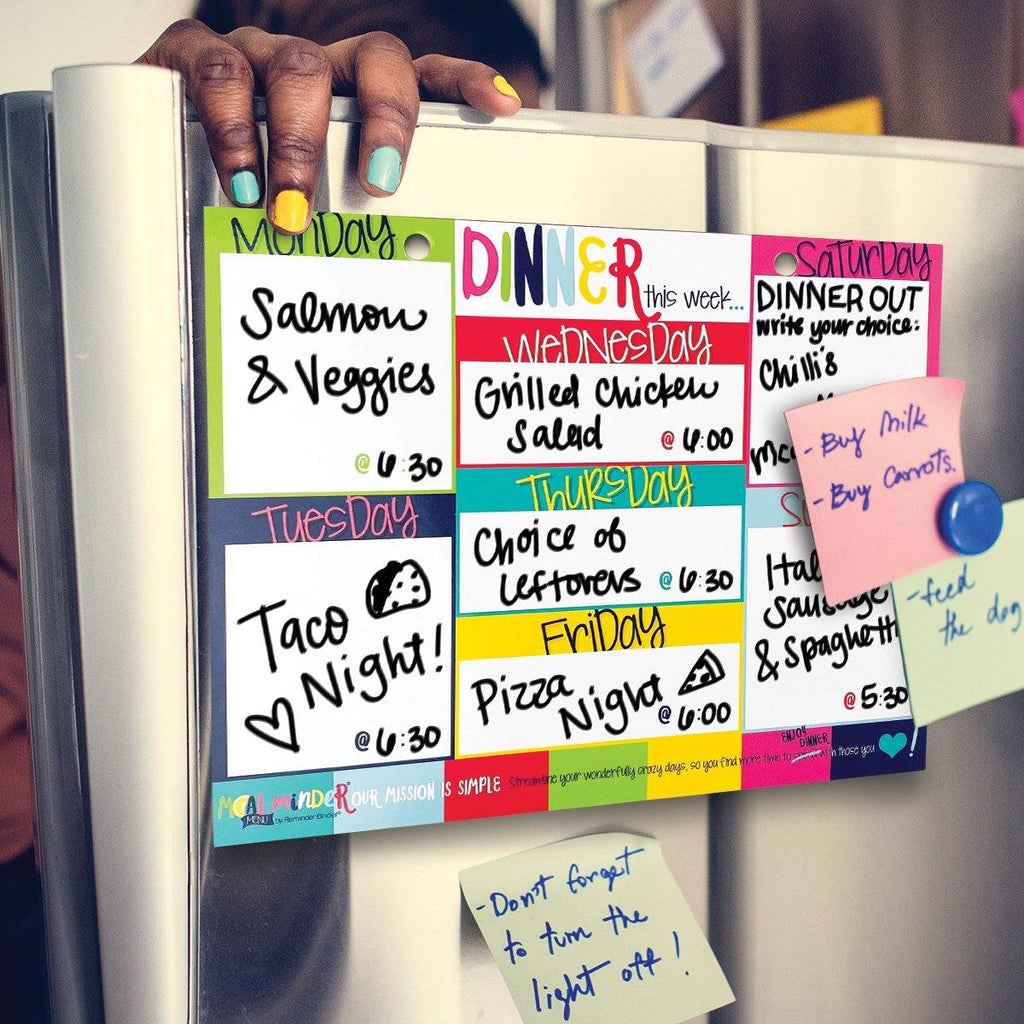 MonDay
Salmon
& Veggies
@ 6:30
TuesDay
Taco
Night!
@ 6:30
DINNER
this week...
WeDnesDay
Grilled Chicken
Salad
@ 6:00
ThursDay
Choice of
Leftovers
@ 6:30
FriDay
Pizza
Night
@ 6:00
SaturDay
DINNER OUT
write your choice:
Chilli's
Sausage
& Spaghetti
@ 5:30
- Buy Milk
- Buy Carrots.
- feed
the dog
MEAL minDeR
MENU by Reminder Binder®
OUR MISSION IS SIMPLE
Streamline your wonderfully crazy days, so you find more time to spend with those you !
ENJOY
DINNER
- Don't forget
to turn the
light off!